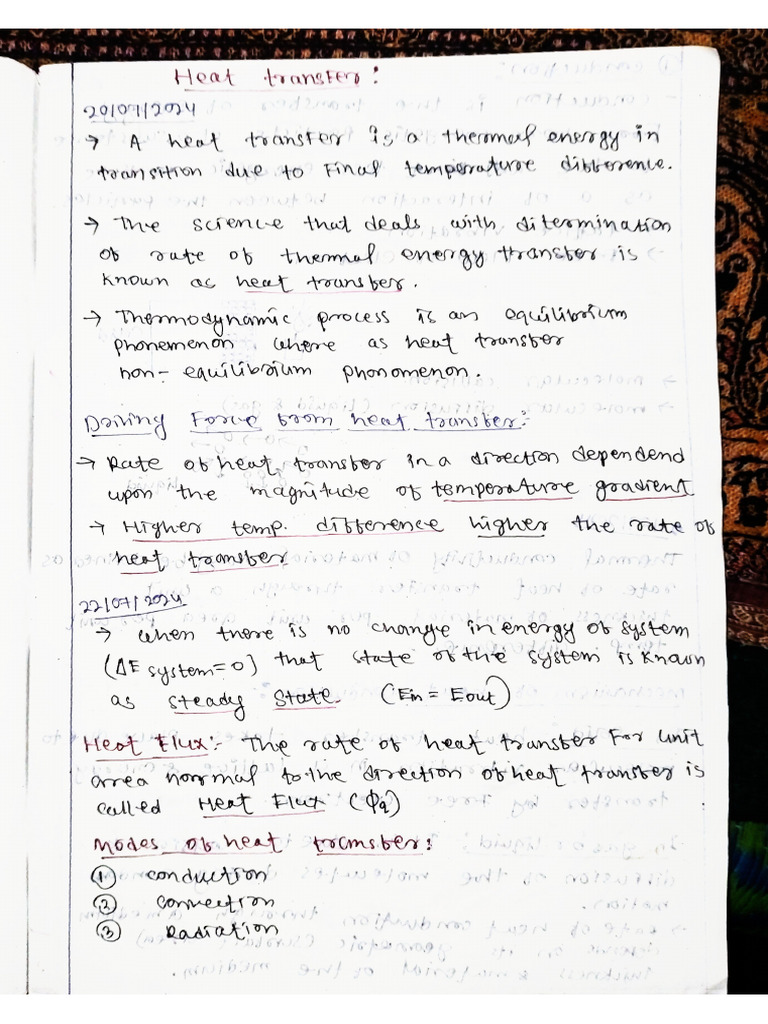 Heat transfer:
20/07/2024
→ A heat transfer is a thermal energy in
transition due to Final temperature difference.
→ The science that deals with ditermination
of rate of thermal energy transfer is
known as heat transfer.
→ Thermodynamic process is an equilibrium
phonemenon where as heat transfer
non-equilibrium phonomenon.
Driving Force from heat transfer:-
→ Rate of heat transfer in a direction dependend
upon the magnitude of temperature gradient
→ Higher temp. difference higher the rate of
heat transfer
22/07/2024
→ when there is no change in energy of system
(ΔE system=0) that state of the system is known
as steady State. (Ein = Eout)
Heat Flux:- The rate of heat transfer For unit
area normal to the direction of heat transfer is
called Heat Flux (Φq)
Modes of heat transfer:
① conduction
② convection
③ Radiation